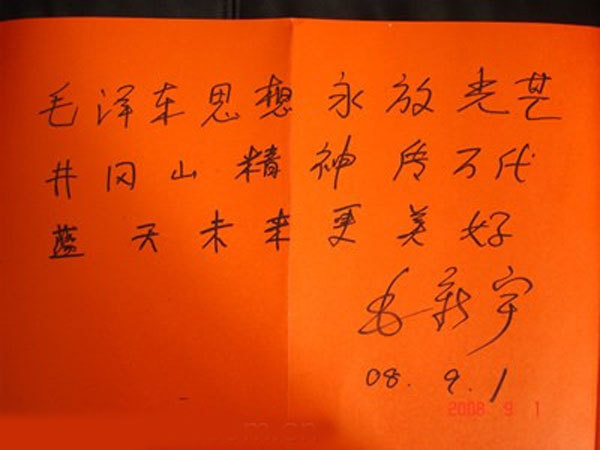 毛泽东思想永放光芒
井冈山精神传万代
蓝天未来更美好
毛新宇
08.9.1
2008 9 1